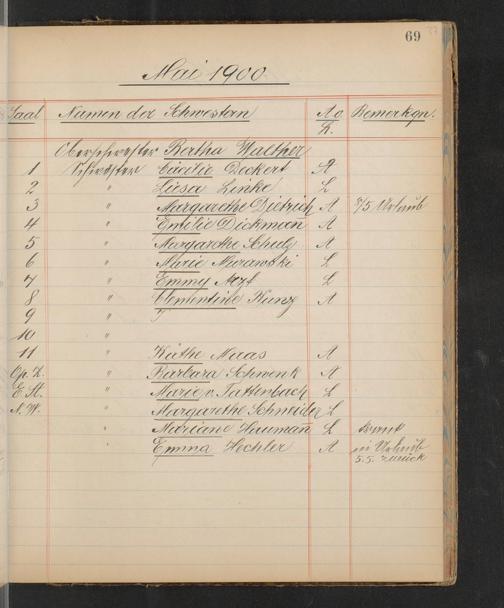 69
Mai 1900
Saal Namen der Schwestern A o. L. Bemerkgn.
Oberschwester Bertha Walther
1 Schwester Cäcilie Deckert A
2 " Luise Linke L
3 " Margarethe Dietrich A 8/5 Urlaub
4 " Emilie Dickmann A
5 " Margarethe Schulz A
6 " Marie Murawski L
7 " Emmy L
8 " Clementine Kunz A
9 "
10 "
11 " Käthe Maas A
Op. Z. " Barbara Schwenk A
E. St. " Marie v. Tattenbach L
N. W. " Margarethe Schneider L
" Mariane Haumann L krank
" Emma Hechler A in Urlaub
5.5. zurück